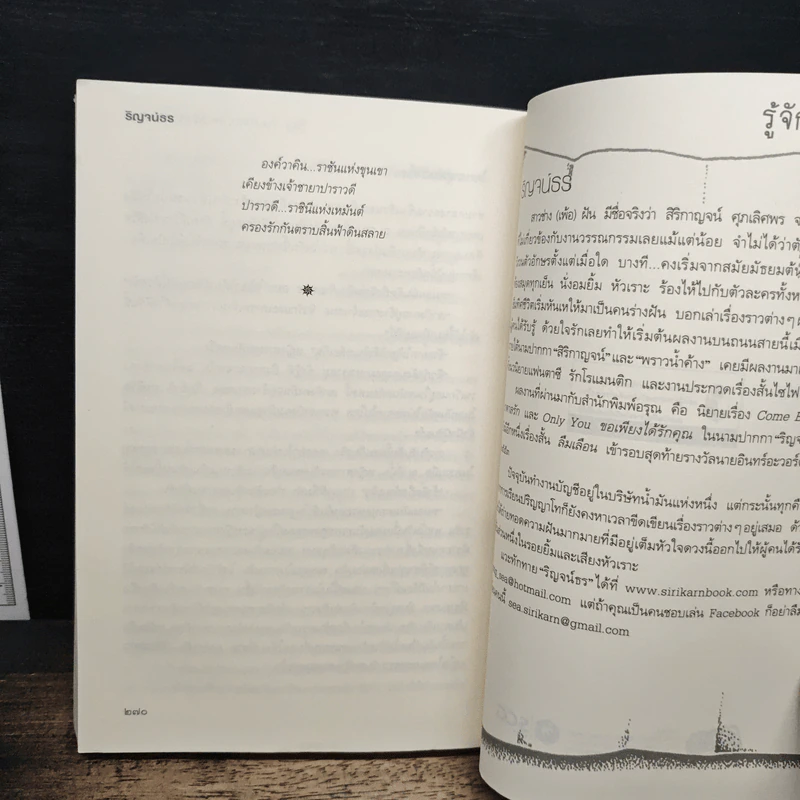 ริญจน์ธร
องค์วาคิน...ราชันแห่งขุนเขา
เคียงข้างเจ้าชายาปาราวตี
ปาราวตี...ราชินีแห่งเหมันต์
ครองรักกันตราบสิ้นฟ้าดินสลาย
๒๗๐
รู้จัก
ริญจน์ธร
สาวช่าง (เพ้อ) ฝัน มีชื่อจริงว่า สิริกาญจน์ ศุภเลิศพร
ไม่เกี่ยวข้องกับงานวรรณกรรมเลยแม้แต่น้อย จำไม่ได้ว่า
ตัวอักษรตั้งแต่เมื่อใด บางที...คงเริ่มจากสมัยมัธยมต้น
ห้องสมุดทุกเย็น นั่งอมยิ้ม หัวเราะ ร้องไห้ไปกับตัวละคร
ชีวิตเริ่มหันเหให้มาเป็นคนร่างฝัน บอกเล่าเรื่องราวต่างๆ
ได้รับรู้ ด้วยใจรักเลยทำให้เริ่มต้นผลงานบนถนนสายนี้
นามปากกา “สิริกาญจน์” และ “พราวน้ำค้าง” เคยมีผลงานมา
นิยายแฟนตาซี รักโรแมนติก และงานประกวดเรื่องสั้นไซไฟ
ผลงานที่ผ่านมากับสำนักพิมพ์อรุณ คือ นิยายเรื่อง Come
และ Only You ขอเพียงได้รักคุณ ในนามปากกา
อีกหนึ่งเรื่องสั้น ลืมเลือน เข้ารอบสุดท้ายรางวัลนายอินทร์อะวอร์ด
ปัจจุบันทำงานบัญชีอยู่ในบริษัทน้ำมันแห่งหนึ่ง แต่กระนั้นทุกคืน
การเรียนปริญญาโทก็ยังคงหาเวลาขีดเขียนเรื่องราวต่างๆ อยู่เสมอ
ถ่ายทอดความฝันมากมายที่มีอยู่เต็มหัวใจดวงนี้ออกไปให้ผู้คนได้
ส่วนหนึ่งในรอยยิ้มและเสียงหัวเราะ
แวะทักทาย “ริญจน์ธร” ได้ที่ www.sirikarnbook.com หรือทาง
sea@hotmail.com แต่ถ้าคุณเป็นคนชอบเล่น Facebook ก็อย่าลืม
sea.sirikarn@gmail.com